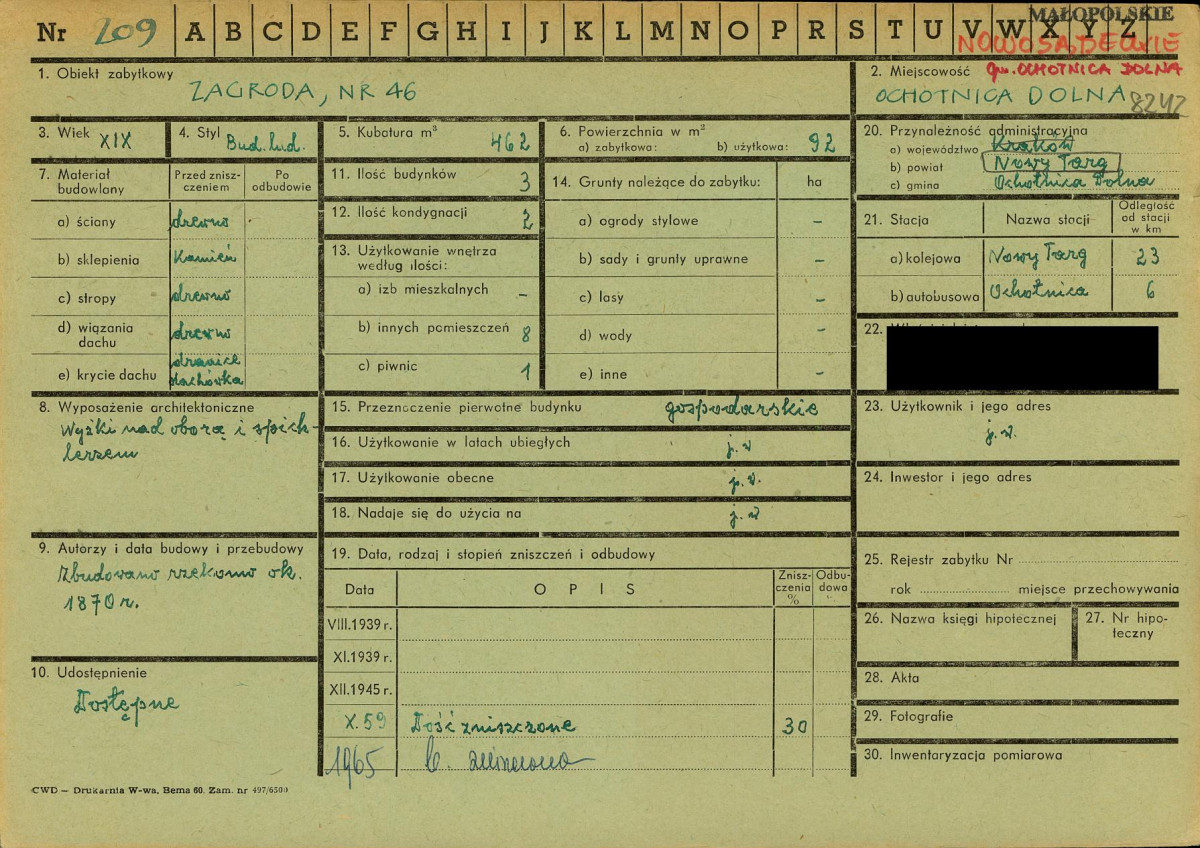 MAŁOPOLSKIE
Nr 209 A B C D E F G H I J K L M N O P R S T U V W X Y Z
NOWOSĄDECKIE
1. Obiekt zabytkowy
ZAGRODA, NR 46
2. Miejscowość gm. OCHOTNICA DOLNA
OCHOTNICA DOLNA 8242
3. Wiek XIX
4. Styl Bud. lud.
5. Kubatura m³ 462
6. Powierzchnia w m²
a) zabytkowa: b) użytkowa: 92
20. Przynależność administracyjna
a) województwo Kraków
b) powiat Nowy Targ
c) gmina Ochotnica Dolna
7. Materiał budowlany
Przed zniszczeniem
Po odbudowie
a) ściany drewno
b) sklepienia kamień
c) stropy drewno
d) wiązania dachu drewno
e) krycie dachu dranice dachówka
11. Ilość budynków 3
12. Ilość kondygnacji 2
13. Użytkowanie wnętrza według ilości:
a) izb mieszkalnych –
b) innych pomieszczeń 8
c) piwnic 1
14. Grunty należące do zabytku: ha
a) ogrody stylowe –
b) sady i grunty uprawne –
c) lasy –
d) wody –
e) inne –
21. Stacja Nazwa stacji Odległość od stacji w km
a) kolejowa Nowy Targ 23
b) autobusowa Ochotnica 6
22.
8. Wyposażenie architektoniczne
Wyżki nad oborą i spich-
lerzem
15. Przeznaczenie pierwotne budynku gospodarskie
16. Użytkowanie w latach ubiegłych j. w
17. Użytkowanie obecne j. w.
18. Nadaje się do użycia na j. w
23. Użytkownik i jego adres
j. w.
24. Inwestor i jego adres
9. Autorzy i data budowy i przebudowy
Zbudowano rzekomo ok.
1870 r.
19. Data, rodzaj i stopień zniszczeń i odbudowy
Data OPIS Zniszczenia % Odbudowa
VIII.1939 r.
XI.1939 r.
XII.1945 r.
X.59 Dość zniszczone 30
1965
25. Rejestr zabytku Nr
rok miejsce przechowywania
26. Nazwa księgi hipotecznej
27. Nr hipoteczny
28. Akta
29. Fotografie
30. Inwentaryzacja pomiarowa
10. Udostępnienie
Dostępne
CWD — Drukarnia W-wa, Bema 60. Zam. nr 497/6500